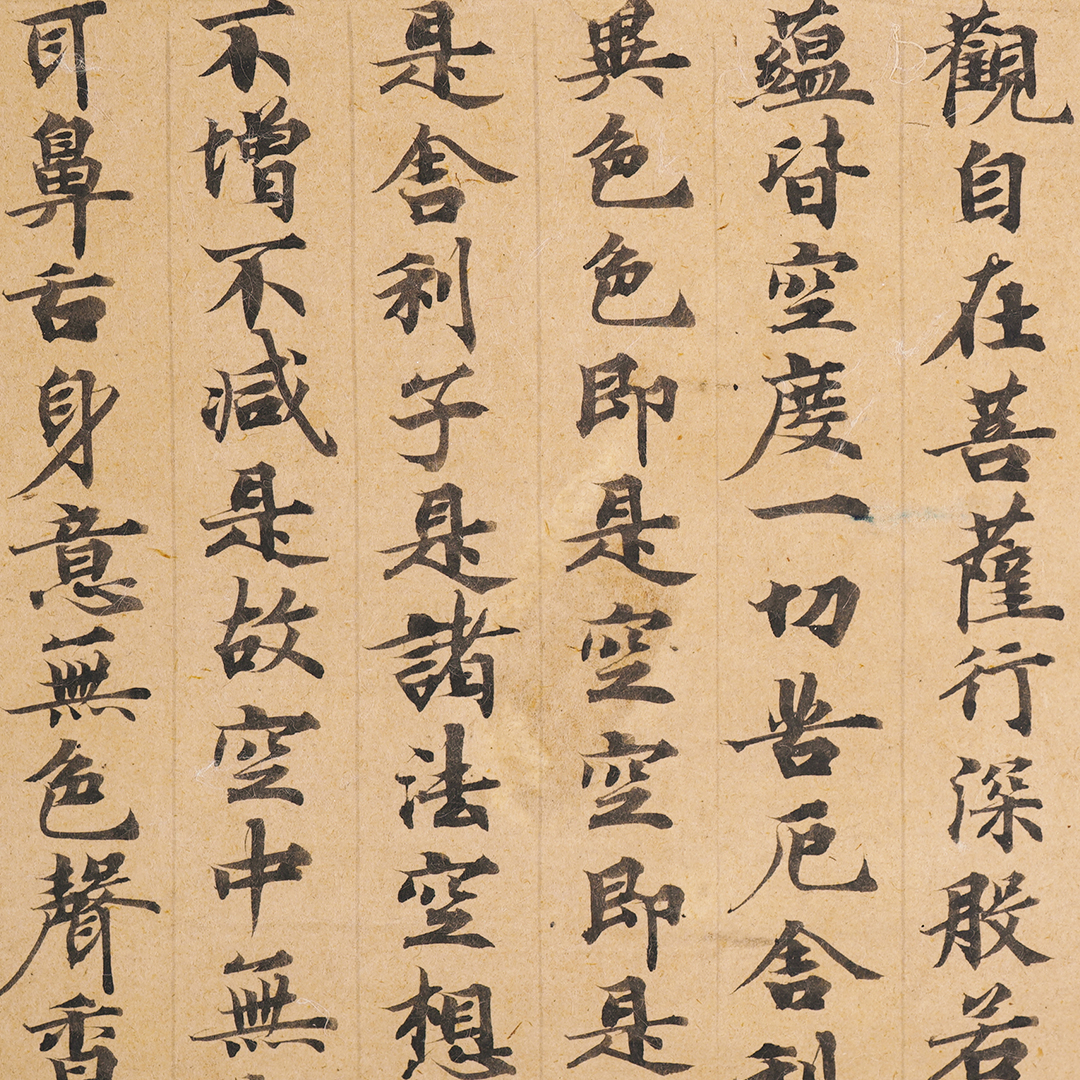 觀自在菩薩行深般若
蘊皆空度一切苦厄舍利
異色色即是空空即是
是舍利子是諸法空想
不增不減是故空中無
耳鼻舌身意無色聲香